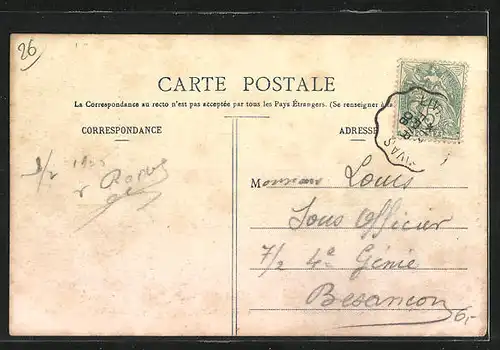 26
CARTE POSTALE
La Correspondance au recto n'est pas acceptée par tous les Pays Étrangers. (Se renseigner à la
CORRESPONDANCE
ADRESSE
Monsieur Louis
Sous Officier
7/2 4e Génie
Besançon
6,-